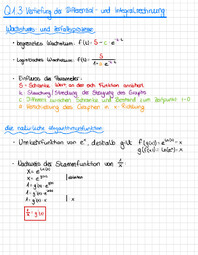 Q1.3 Vertiefung der Differenzial- und Integralrechnung
Wachstums- und Zerfallsprozesse
· begrenztes Wachstum: f(x) = S - c · e
· Logistisches Wachstum: f(x) = S
· Einfluss der Parameter:
S = Schranke. Wert an den sich Funktion annähert
b: Stauchung/Streckung der Steigung des Graphs
c: Differenz zwischen Schranke und Bestand zum Zeitpunkt t=0
a: Verschiebung des Graphen in x-Richtung
die natürliche Logarithmusfunktion
· Umkehrfunktion von eˣ, deshalb gilt
f(g(x)) = e^ln(x) = x
g(f(x)) = ln(eˣ) = x
· Nachweis der Stammfunktion von 1/x
x = e^ln(x)
x = e^g(x) | ableiten
1 = g'(x) · e^g(x)
1 = g'(x) · e^ln(x)
1 = g'(x) · x | :x
1/x = g'(x)